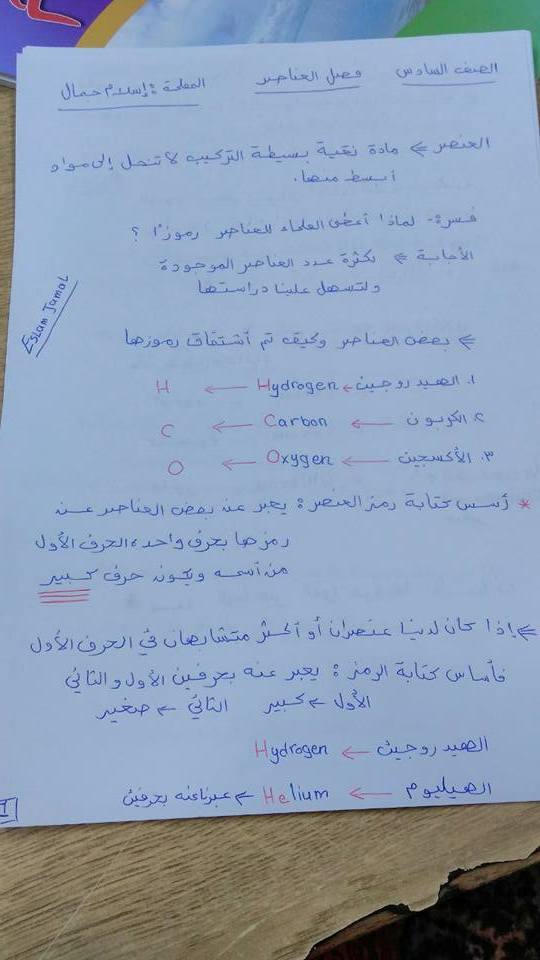 الصف السادس فصل العناصر المعلمة : إسلام جمال
العنصر ⇐ مادة نقية بسيطة التركيب لا تنحل إلى مواد
أبسط منها.
فسر:- لماذا أعطى العلماء للعناصر رموزًا ؟
الأجابة ⇐ لكثرة عدد العناصر الموجودة
ولتسهل علينا دراستها
Eslam Jamal
⇐ بعض العناصر وكيف تم أشتقاق رموزها
١. الهيدروجين ← Hydrogen ← H
٢. الكربون ← Carbon ← C
٣. الأكسجين ← Oxygen ← O
* أسس كتابة رمز العنصر : يعبر عن بعض العناصر عند
رمزها بحرف واحد، الحرف الأول
من أسمه ويكون حرف كبير
⇐ إذا كان لدينا عنصران أو أكثر متشابهان في الحرف الأول
فأساس كتابة الرمز : يعبر عنه بحرفين الأول والثاني
الأول ⇐ كبير الثاني ⇐ صغير
الهيدروجين ← Hydrogen
الهيليوم ← Helium ⇐ عبرنا عنه بحرفين
1